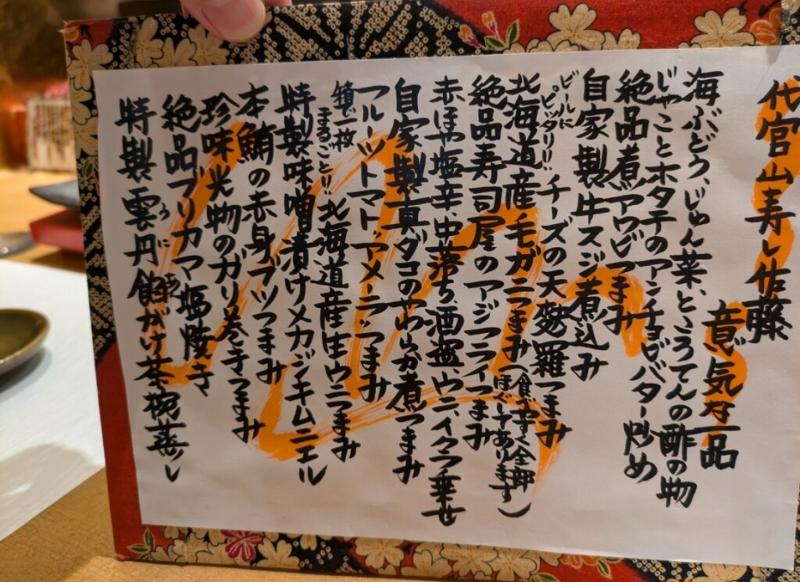 代官山寿し佐藤
意気な一品
海ぶどう、じゅん菜、ところてんの酢の物
じゃことホタテのアンチョビバター炒め
絶品煮アワビつまみ
自家製牛スジ煮込み
ビールにピッタリ!!チーズの天麩羅つまみ
北海道産毛ガニつまみ(食べやすく全部ほぐしてあります)
絶品寿司屋のアジフライつまみ
赤ほや塩辛、中落ち酒盗、ウニ、イクラ乗せ
自家製真ダコのやわらか煮つまみ
フルーツトマト、アメーラ、つまみ
箱で一枚まるごと!!北海道産生ウニつまみ
特製味噌漬けメカジキムニエル
本鮪の赤身ブツつまみ
珍味光物のガリ巻き手つまみ
絶品ブリカマ塩焼き
特製雲丹うに餡がけ茶椀蒸し